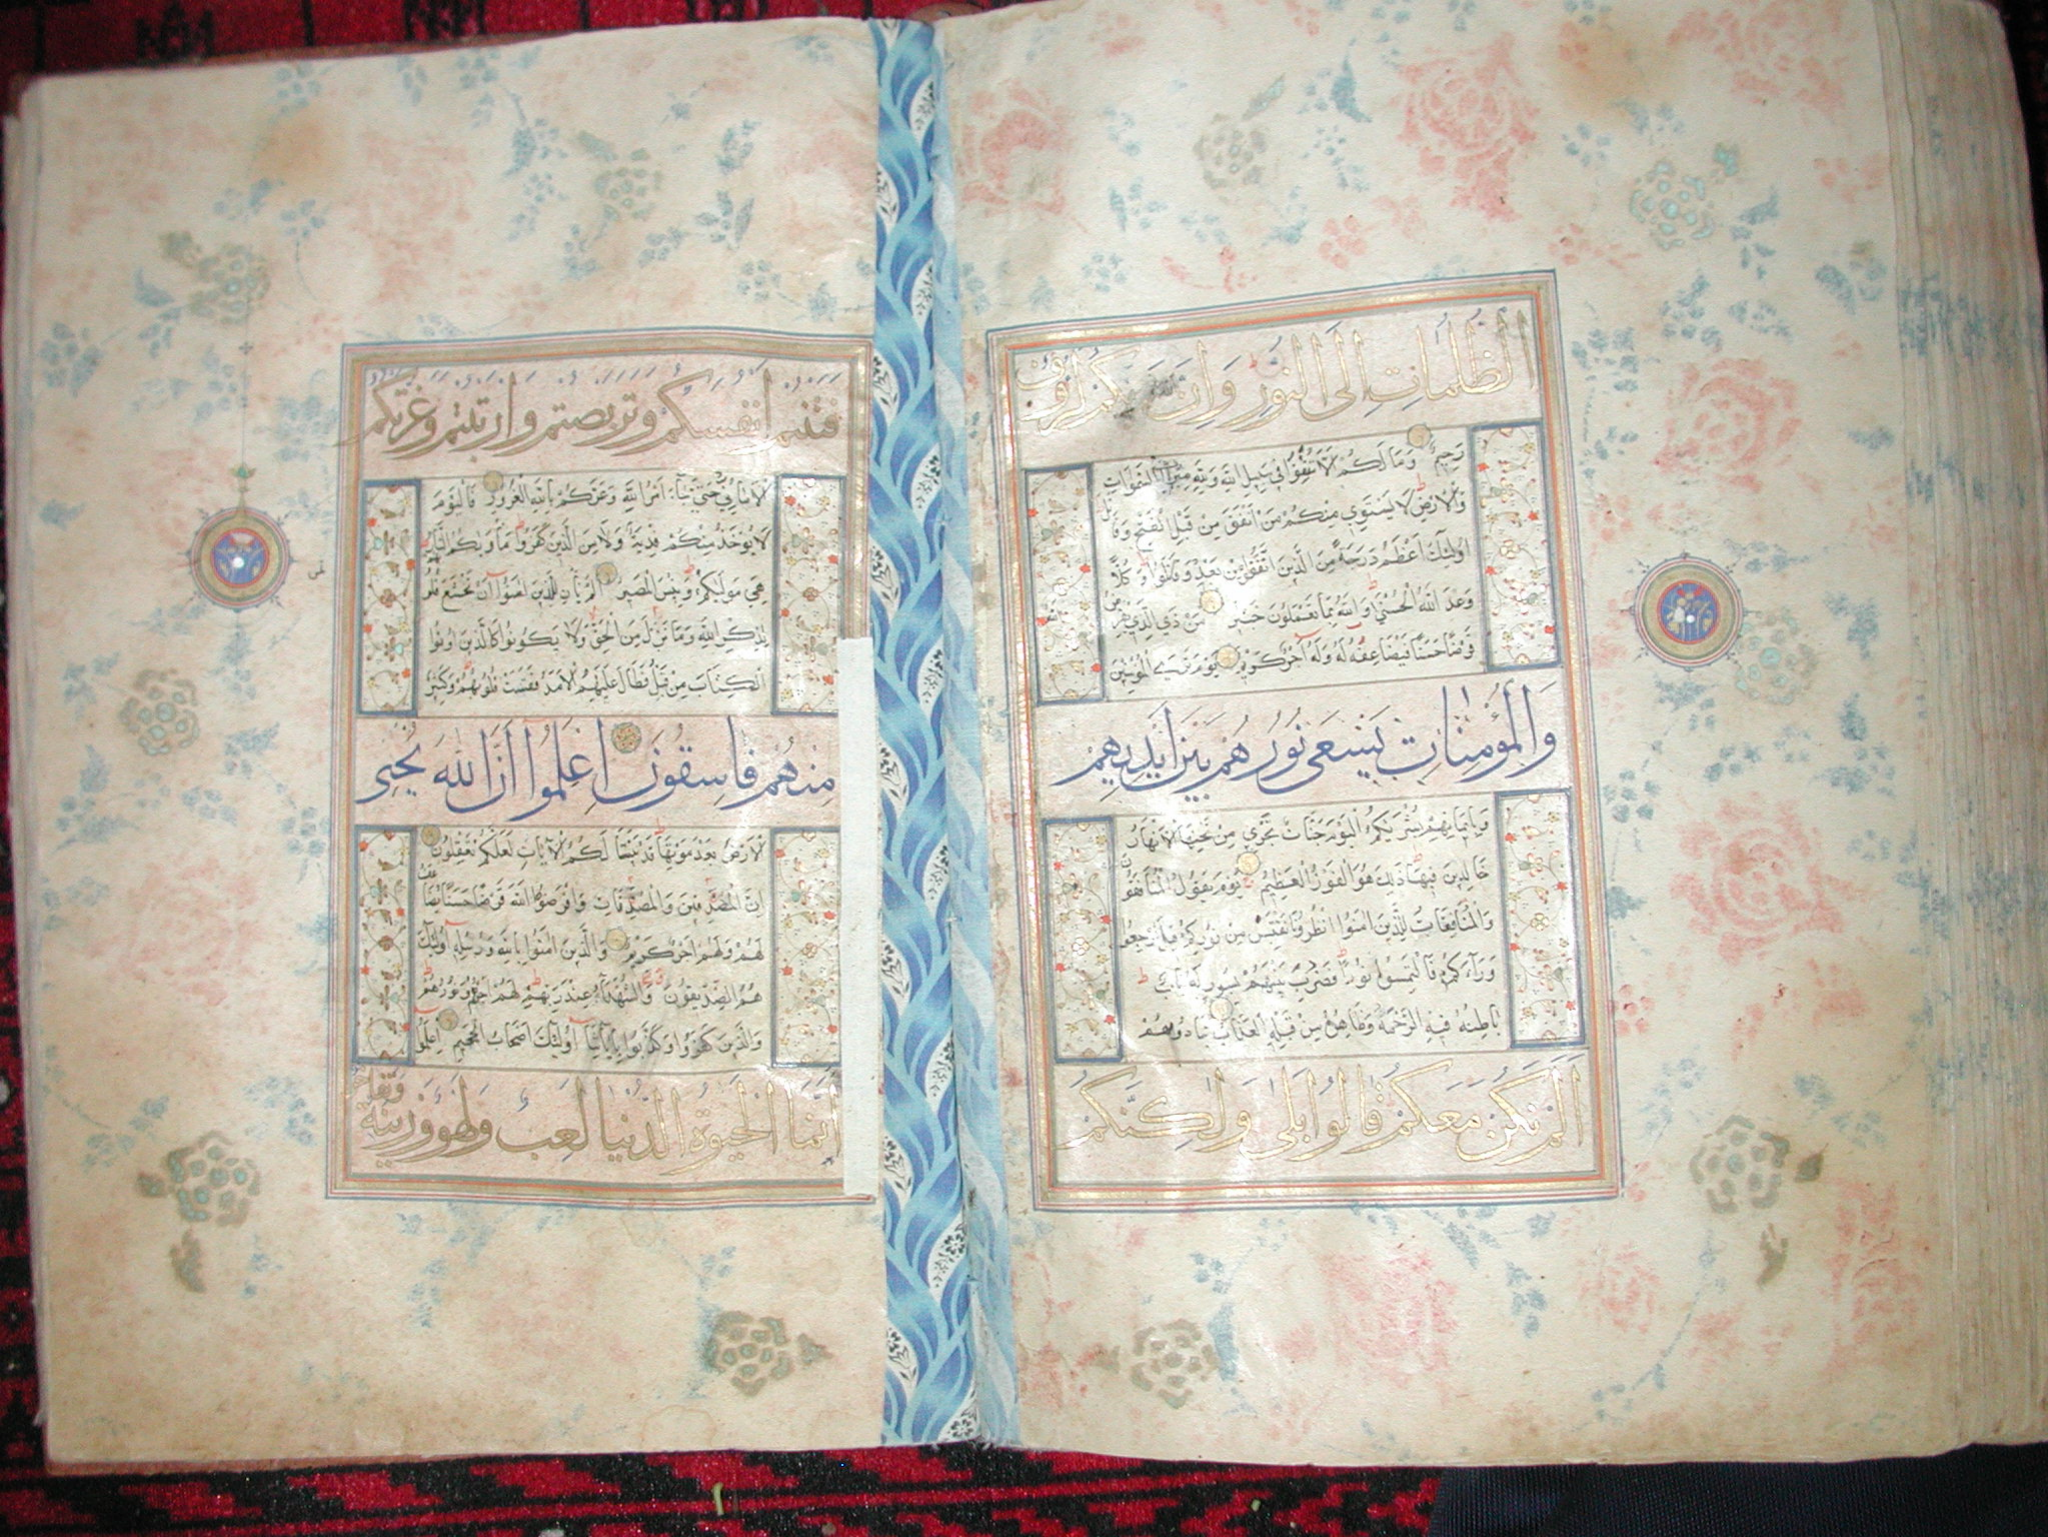 الظلمات الى النور وان الله بكم لرؤف
رحيم وما لكم لا تنفقوا في سبيل الله ولله ميراث السموات
والارض لا يستوي منكم من انفق من قبل الفتح وقاتل
اولئك اعظم درجة من الذين انفقوا من بعد وقاتلوا وكلا
وعد الله الحسنى والله بما تعملون خبير من ذي الذي يقرض
قرضا حسنا فيضاعفه له وله اجر كريم يوم ترى المؤمنين
والمؤمنات يسعى نورهم بين ايديهم
وبايمانهم بشريكم اليوم جنات تجري من تحتها الانهار
خالدين فيها ذلك هو الفوز العظيم يوم يقول المنافقون
والمنافقات للذين امنوا انظرونا نقتبس من نوركم قيل ارجعوا
وراءكم فالتمسوا نورا فضرب بينهم بسور له باب
باطنه فيه الرحمة وظاهره من قبله العذاب ينادونهم
الم نكن معكم قالوا بلى ولكنكم
فتنتم انفسكم وتربصتم وارتبتم وغرتكم
الاماني حتى جاء امر الله وغركم بالله الغرور فاليوم
لا يؤخذ منكم فدية ولا من الذين كفروا ماويكم النار
هي موليكم وبئس المصير الم يأن للذين امنوا ان تخشع قلوبهم
لذكر الله وما نزل من الحق ولا يكونوا كالذين اوتوا
الكتاب من قبل فطال عليهم الامد فقست قلوبهم وكثير
منهم فاسقون اعلموا ان الله يحيى
الارض بعد موتها قد بينا لكم الايات لعلكم تعقلون
ان المصدقين والمصدقات واقرضوا الله قرضا حسنا يضاعف
لهم ولهم اجر كريم والذين امنوا بالله ورسله اولئك
هم الصديقون والشهداء عند ربهم لهم اجرهم ونورهم
والذين كفروا وكذبوا باياتنا اولئك اصحاب الجحيم اعلموا
انما الحيوة الدنيا لعب ولهو وزينة وتفاخر